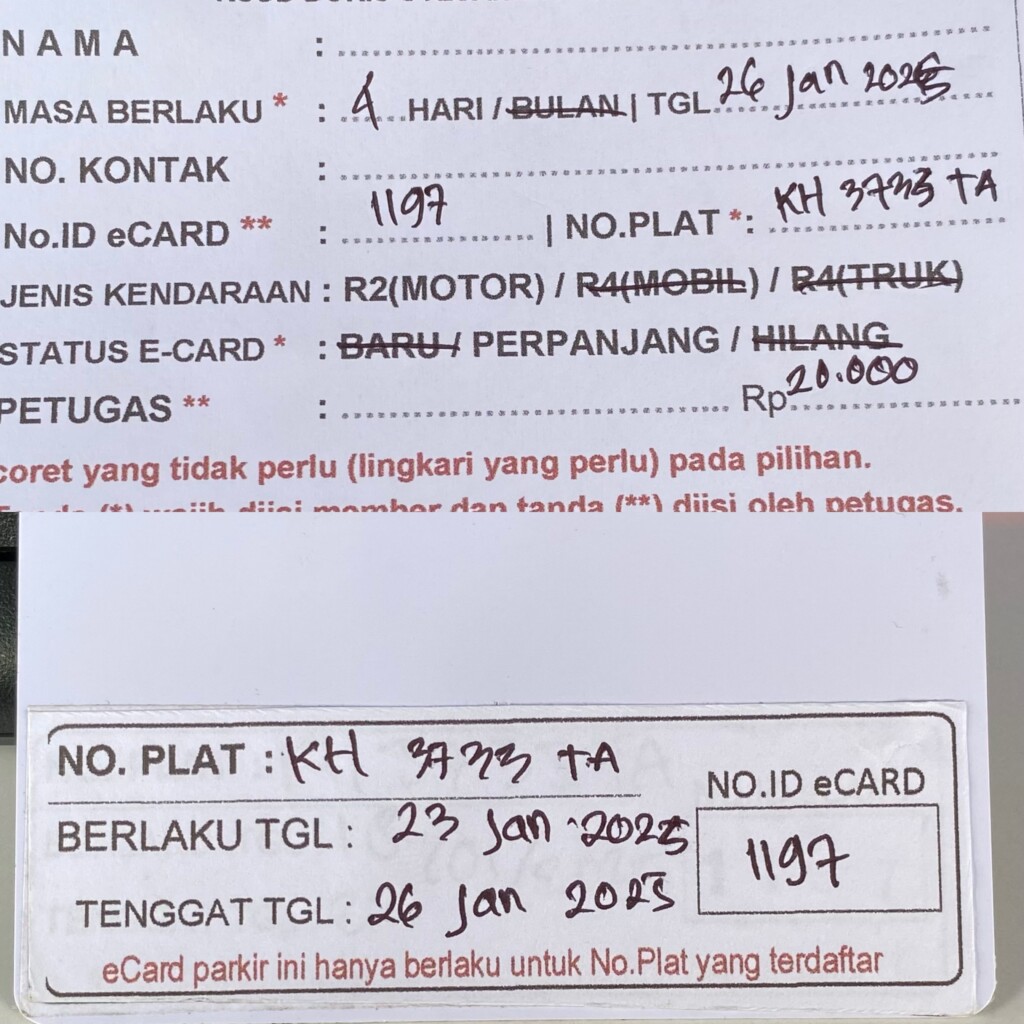 N A M A :
MASA BERLAKU * : 4 HARI / BULAN | TGL 26 Jan 2025
NO. KONTAK :
No.ID eCARD ** : 1197 | NO.PLAT *: KH 3733 TA
JENIS KENDARAAN : R2(MOTOR) / R4(MOBIL) / R4(TRUK)
STATUS E-CARD * : BARU / PERPANJANG / HILANG
PETUGAS ** : Rp 20.000
coret yang tidak perlu (lingkari yang perlu) pada pilihan.
(*) wajib diisi member dan tanda (**) diisi oleh petugas.
NO. PLAT : KH 3733 TA
NO.ID eCARD
BERLAKU TGL : 23 Jan 2025
1197
TENGGAT TGL : 26 Jan 2025
eCard parkir ini hanya berlaku untuk No.Plat yang terdaftar